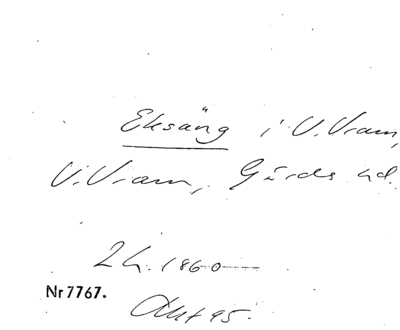 Eksäng i V. Vram,
V. Vram, Gärds hd.
2 h. 1860
Nr 7767.
Akt 95.